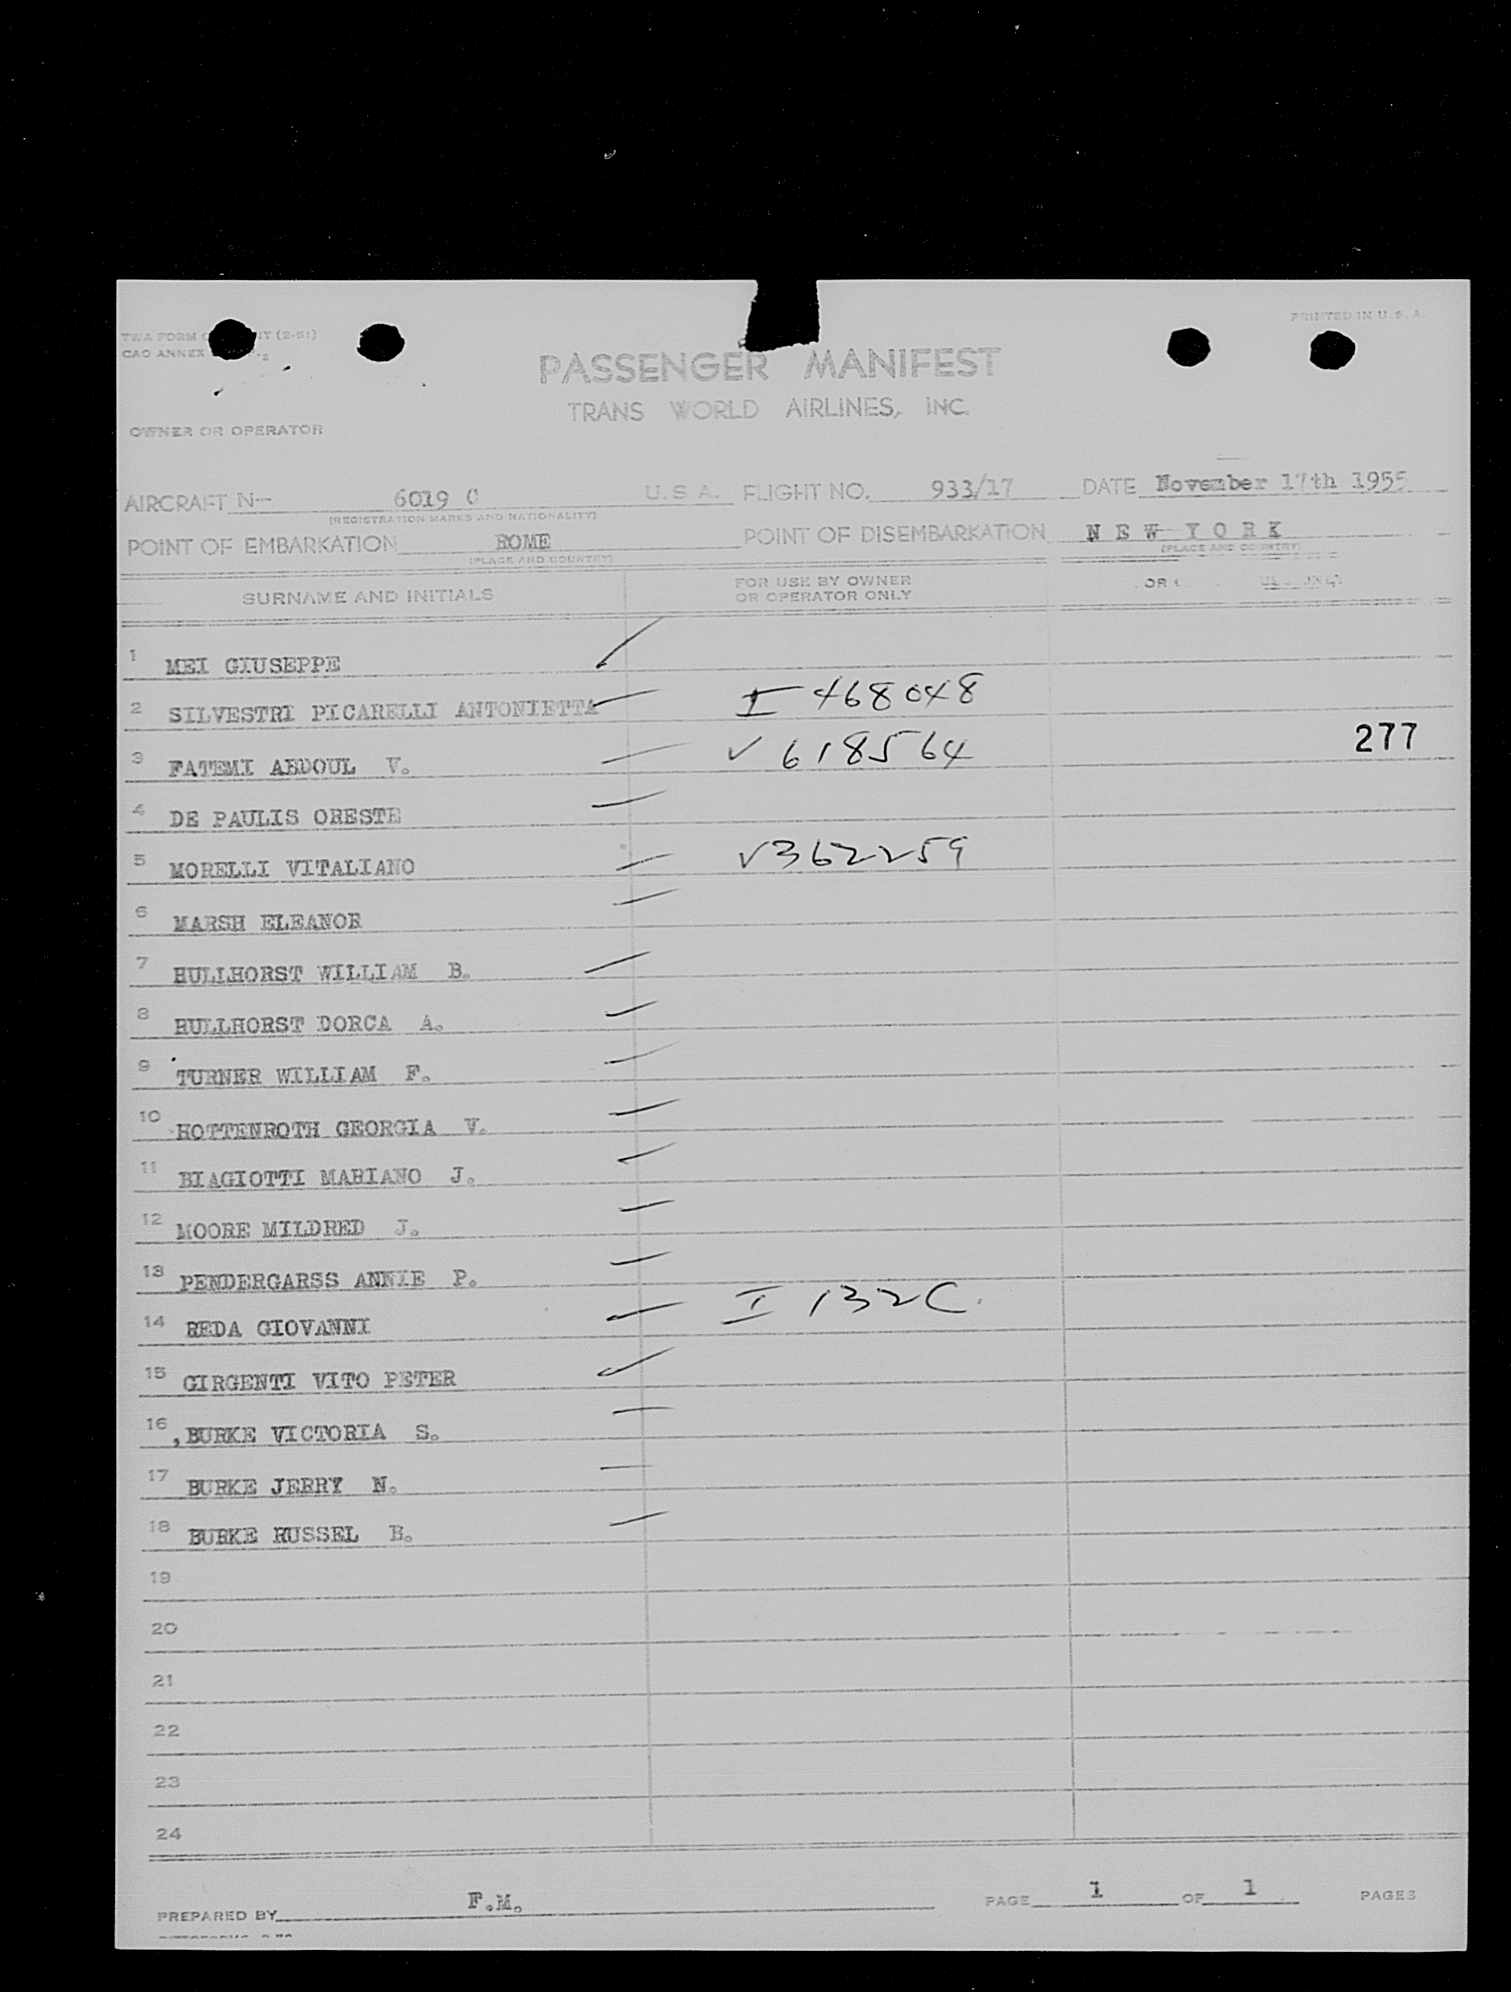 PRINTED IN U.S.A.
TWA FORM
CAO ANNEX
PASSENGER MANIFEST
TRANS WORLD AIRLINES, INC.
OWNER OR OPERATOR
AIRCRAFT N- 6019 C U.S.A. FLIGHT NO. 933/17 DATE November 17th 1955
(REGISTRATION MARKS AND NATIONALITY)
POINT OF EMBARKATION ROME POINT OF DISEMBARKATION NEW YORK
(PLACE AND COUNTRY) (PLACE AND COUNTRY)
SURNAME AND INITIALS FOR USE BY OWNER OR OPERATOR ONLY
1 MEI GIUSEPPE
2 SILVESTRI PICARELLI ANTONIETTA I 468048
3 FATEMI ABDOUL V. V 618564 277
4 DE PAULIS ORESTE
5 MORELLI VITALIANO V362259
6 MARSH ELEANOR
7 HULLHORST WILLIAM B.
8 HULLHORST DORCA A.
9 TURNER WILLIAM F.
10 HOTTENROTH GEORGIA V.
11 BIAGIOTTI MARIANO J.
12 MOORE MILDRED J.
13 PENDERGARSS ANNIE P.
14 REDA GIOVANNI I 132C.
15 GIRGENTI VITO PETER
16 BURKE VICTORIA S.
17 BURKE JERRY N.
18 BURKE RUSSEL B.
19
20
21
22
23
24
PREPARED BY F.M. PAGE 1 OF 1 PAGES